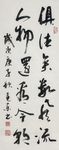 俱往矣數風流
人物還看今朝
庚子秋